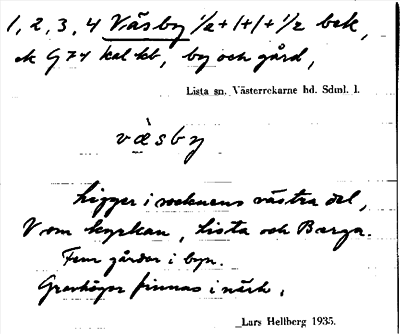 1, 2, 3, 4 Väsby 1/2+1+1+1/2 bek,
ek G 74 kal kt, by och gård,
Lista sn. Västerrekarne hd. Sdml. l.
vὰsby
Ligger i socknens västra del,
V om kyrkan, Lista och Berga.
Fem gårdar i byn.
Gravhögar finnas i närh.
Lars Hellberg 1935.